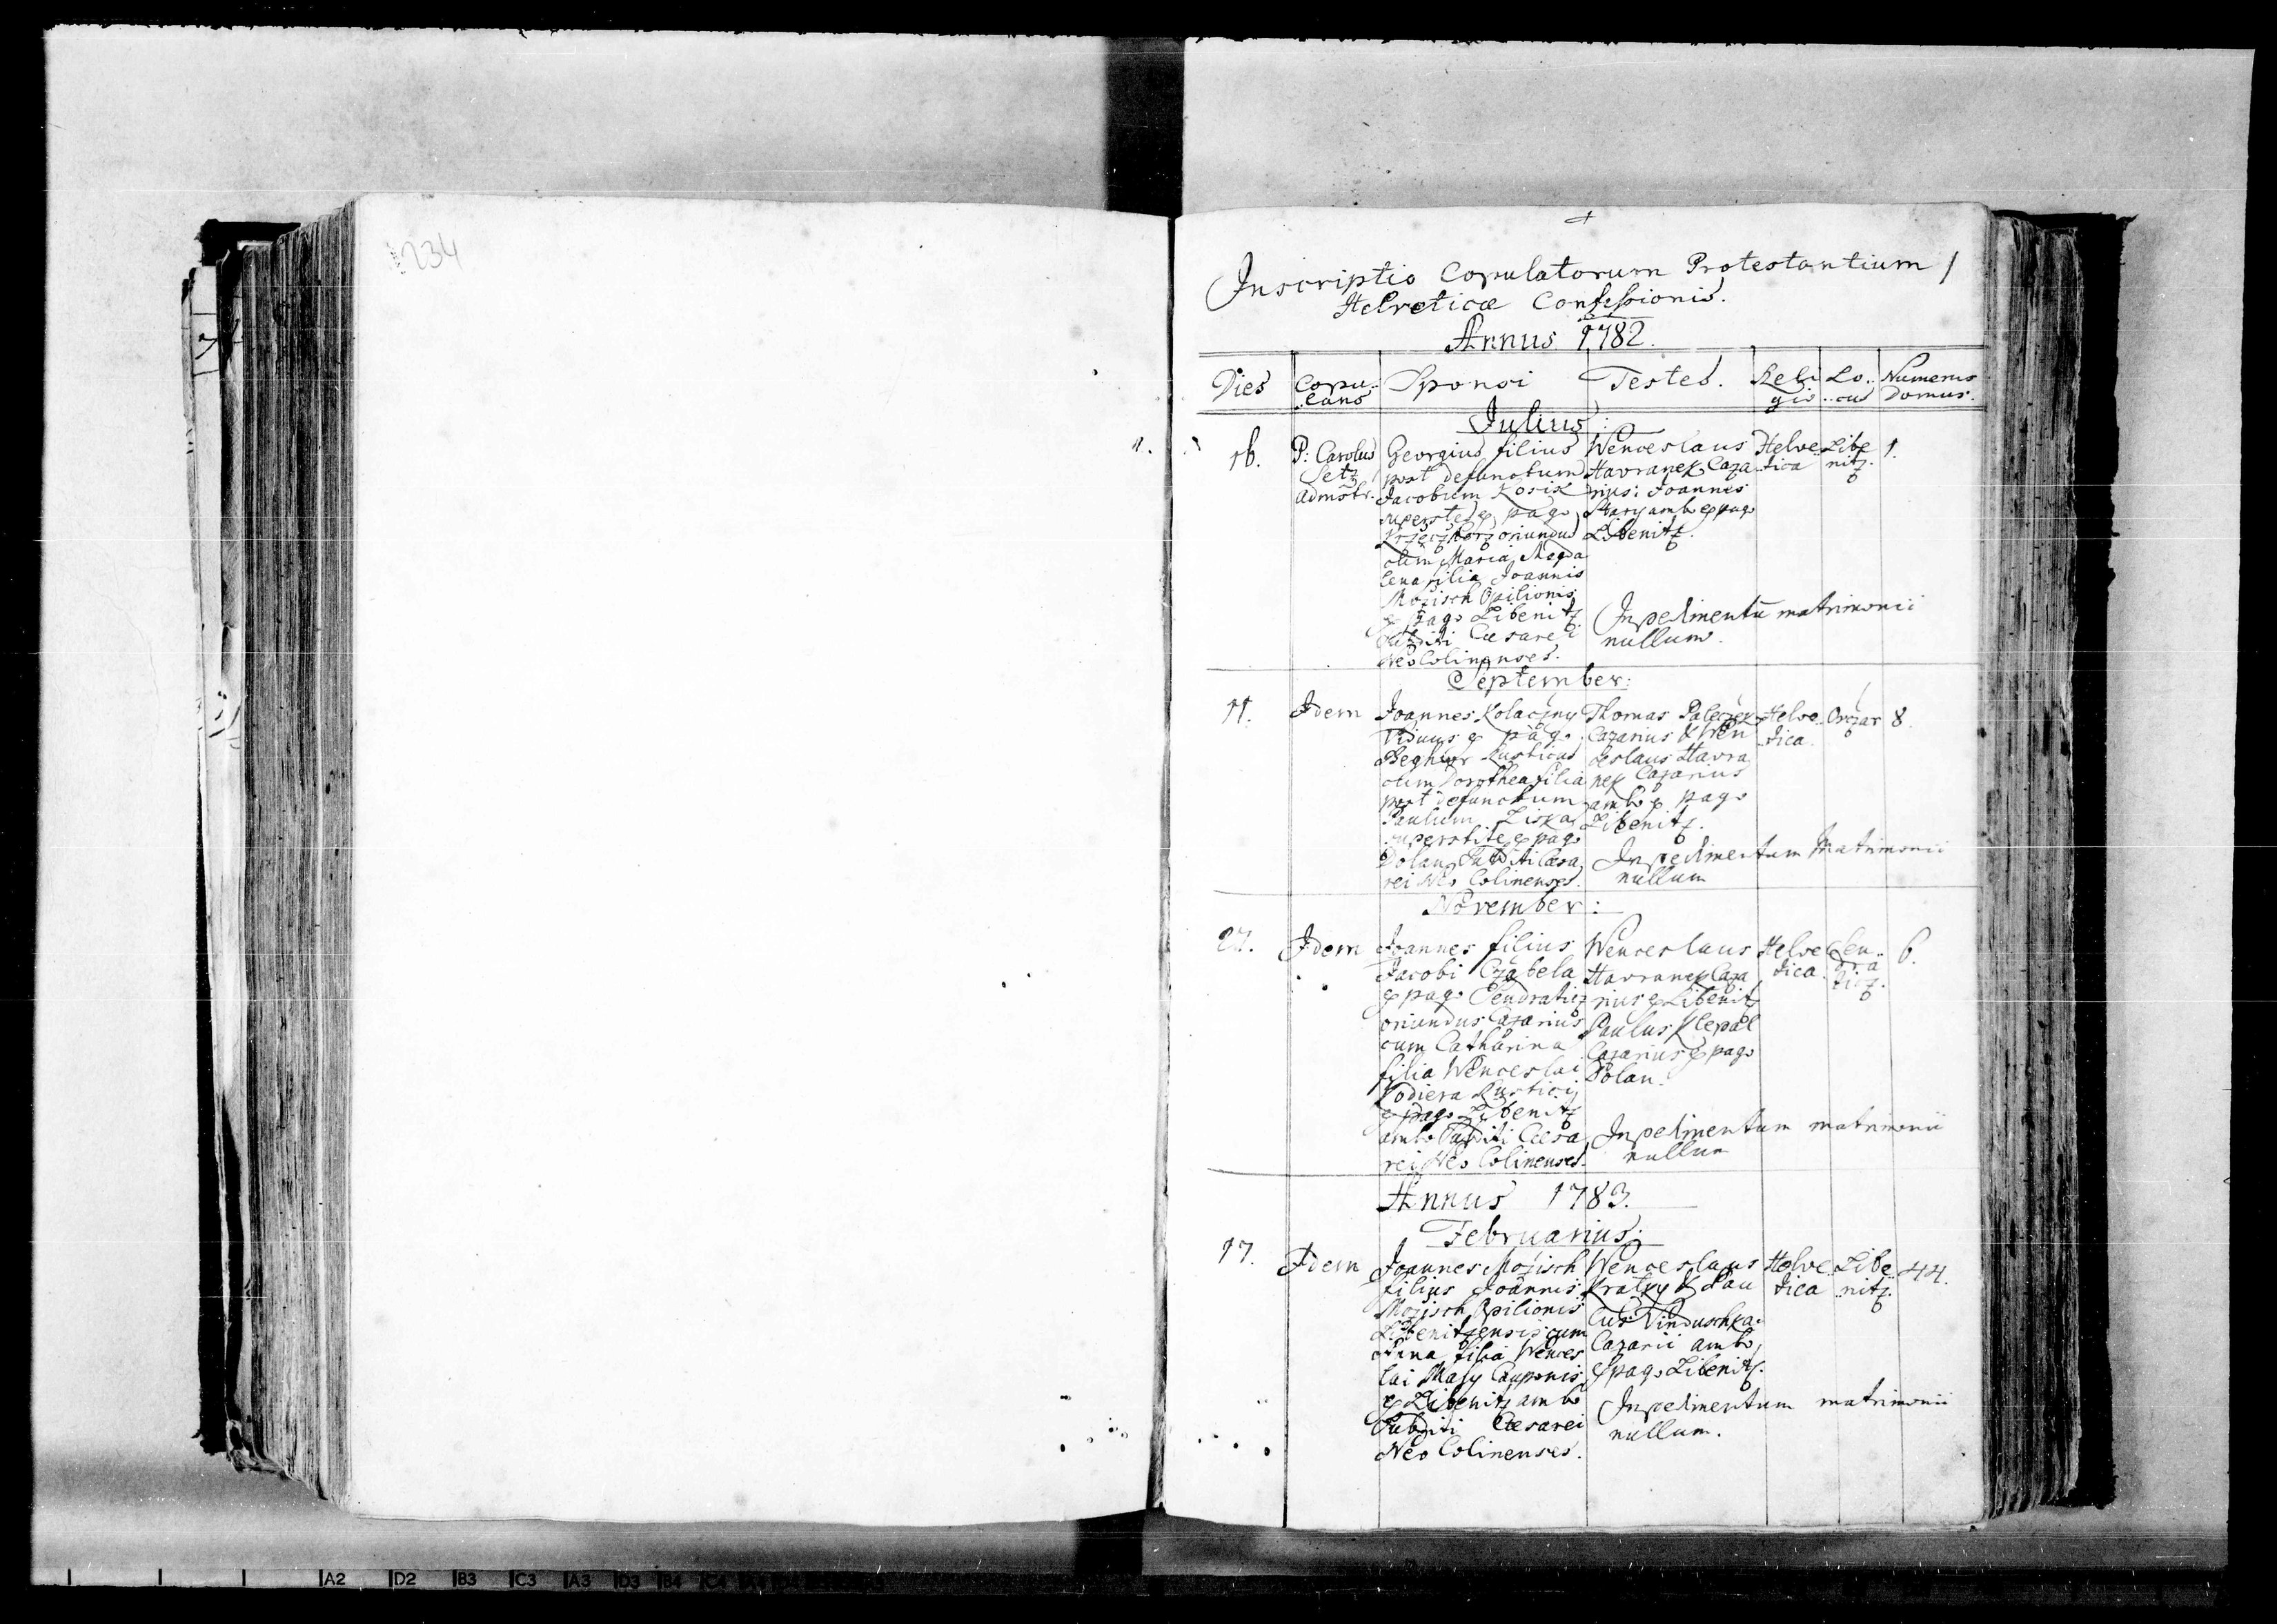 234
Inscriptio Copulatorum Protestantium 1
Helveticæ Confessionis.
Annus 1782.
Dies
Copu..
..lans
Sponsi
Testes.
Reli
gio
Lo..
..cus
Numerus
Domus.
Julius:
16.
P: Carolus
Setz
Admstr.
Georgius filius
post defunctum
Jacobum Kosik
superstes e pago
oriundus
cum Maria Magda
lena filia Joannis
Mozisch Opilionis
e pago Libenitz
Subditi Cæsarei
Neo Colinenses.
Wenceslaus
Havranek Caza
rius: Joannes
Stary ambo e pago
Libenitz.
Helve..
..tica
Libe
nitz.
1.
Inpedimentū matrimonii
nullum.
September:
11.
Idem
Joannes Kolaczny
Viduus e pago
Rusticus
cum Dorothea filia
post defunctum
Paulum Ziska
superstite e pago
Dolan Subditi Cæsa
rei Neo Colinenses.
Thomas Paleczek
Cazarius & Wen
ceslaus Havra
nek Cazarius
ambo e pago
Libenitz.
Helve..
..tica.
Ovczar
8.
Inpedimentum Matrimonii
nullum
November:
27.
Idem
Joannes filius
Jacobi Czabela
e pago Sendraticz
oriundus Cazarius
cum Catharina
filia Wenceslai
Vodiera Rustici
e pago Libenitz
ambo Subditi Cæsa
rei Neo Colinenses.
Wenceslaus
Havranek Caza
rius e Libenitz
Paulus Klepal
Cazarius e pago
Dolan.
Helve
tica.
Sen..
dra
ticz.
6.
Inpedimentum matrimonii
nullum
Annus 1783.
Februarius:
17.
Idem
Joannes Mozisch
filius Joannis
Mozisch Opilionis
Libenitzensis cum
Anna filia Wences
lai Masy Cauponis
e Libenitz ambo
Subditi Cæsarei
Neo Colinenses.
Wenceslaus
Kratky & Pau
lus Vinduschka
Cazarii ambo
e pago Libenitz.
Helve..
tica
Libe
..nitz.
44.
Inpedimentum matrimonii
nullum.
A2 D2 B3 C3 A3 D3 B4 C4